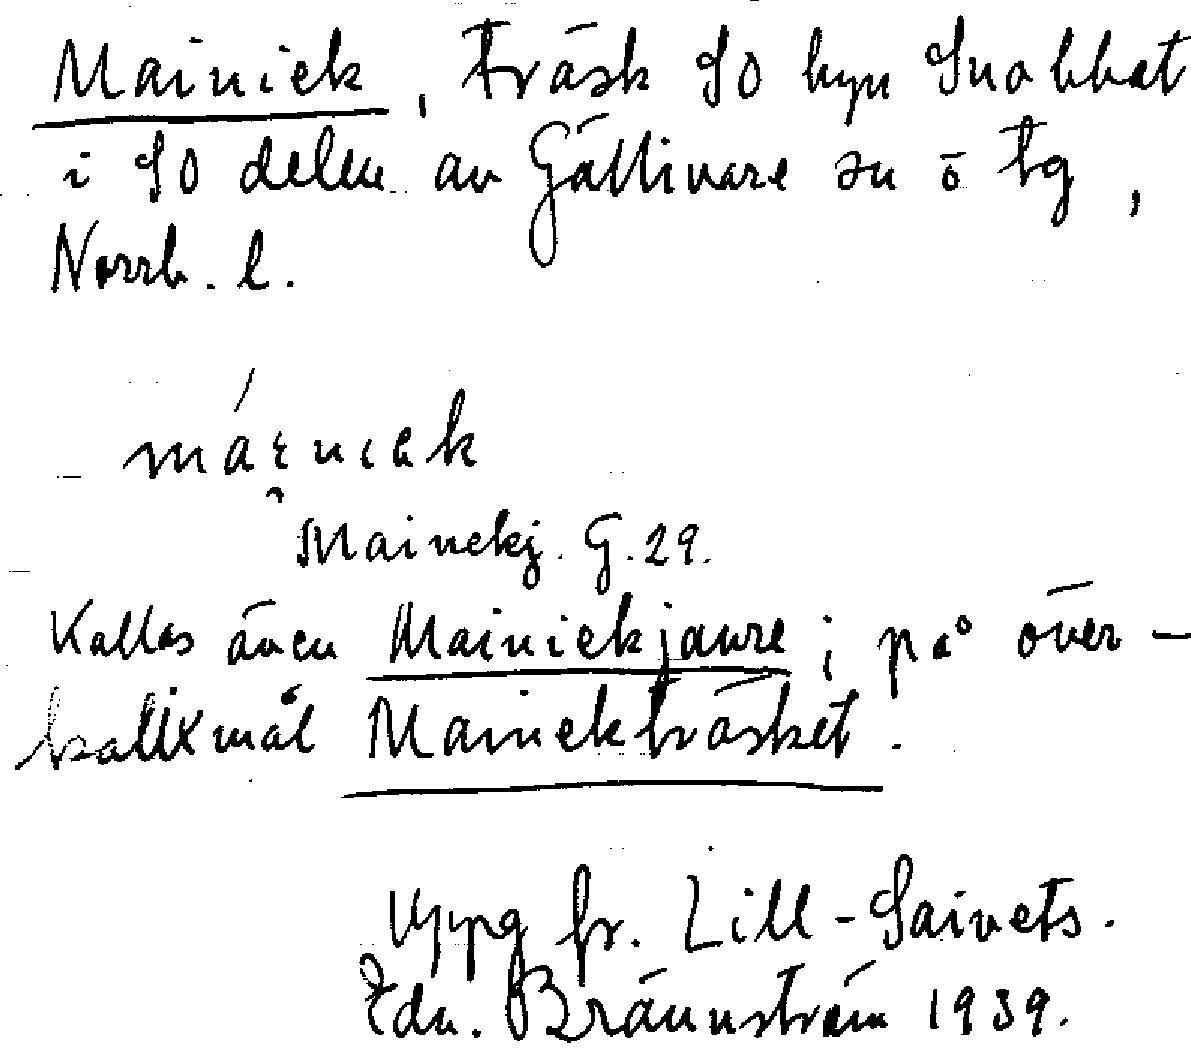 Mainiek, träsk SO byn Snobbat
i SO delen av Gällivare sn ö tg,
Norrb. l.
Mainekj. G. 29.
Kallas även Mainiekjaure; på över-
kalixmål Mainekträsket.
Uppg fr. Lill-Saivets.
Edv. Brännström 1939.